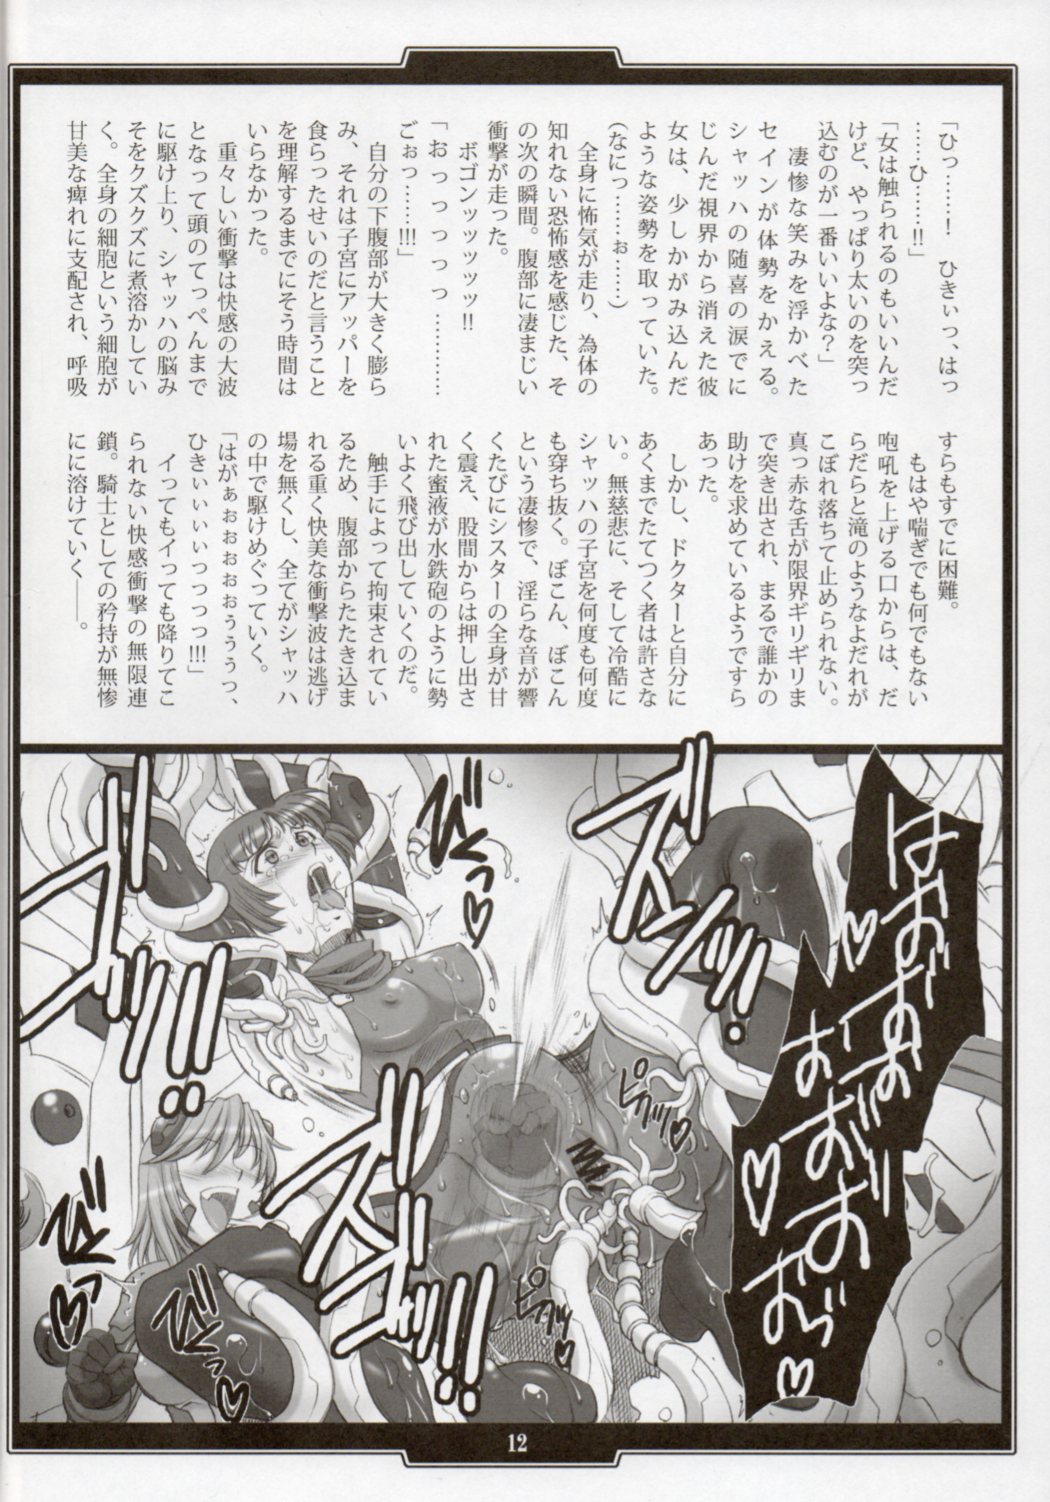 「ひっ……！　ひきぃっ、はっ
……ひ……!!」
「女は触られるのもいいんだ
けど、やっぱり太いのを突っ
込むのが一番いいよな？」
　凄惨な笑みを浮かべた
セインが体勢をかえる。
シャッハの随喜の涙でに
じんだ視界から消えた彼
女は、少しかがみ込んだ
ような姿勢を取っていた。
(なにっ……ぉ……)
　全身に怖気が走り、為体の
知れない恐怖感を感じた、そ
の次の瞬間。腹部に凄まじい
衝撃が走った。
　ボゴンッッッッッ!!
「おっっっっっ…………
ごぉっ……!!!」
　自分の下腹部が大きく膨ら
み、それは子宮にアッパーを
食らったせいのだと言うこと
を理解するまでにそう時間は
いらなかった。
　重々しい衝撃は快感の大波
となって頭のてっぺんまで
に駆け上り、シャッハの脳み
そをクズクズに煮溶かしてい
く。全身の細胞という細胞が
甘美な痺れに支配され、呼吸
すらもすでに困難。
　もはや喘ぎでも何でもない
咆吼を上げる口からは、だ
らだらと滝のようなよだれが
こぼれ落ちて止められない。
真っ赤な舌が限界ギリギリま
で突き出され、まるで誰かの
助けを求めているようですら
あった。
　しかし、ドクターと自分に
あくまでたてつく者は許さな
い。無慈悲に、そして冷酷に
シャッハの子宮を何度も何度
も穿ち抜く。ぼこん、ぼこん
という凄惨で、淫らな音が響
くたびにシスターの全身が甘
く震え、股間からは押し出さ
れた蜜液が水鉄砲のように勢
いよく飛び出していくのだ。
　触手によって拘束されてい
るため、腹部からたたき込ま
れる重く快美な衝撃波は逃げ
場を無くし、全てがシャッハ
の中で駆けめぐっていく。
「はがぁぉぉぉぉぉぅぅぅっ、
ひきぃぃぃぃっっっっ!!!」
　イってもイっても降りてこ
られない快感衝撃の無限連
鎖。騎士としての矜持が無惨
にに溶けていく――。
ズンッ!!
ビくっ♡
ズゴッ!!!
ピクッ♡
ピクッ♡
ズゴッ!!
ビくっ♡
ビくっ♡
12